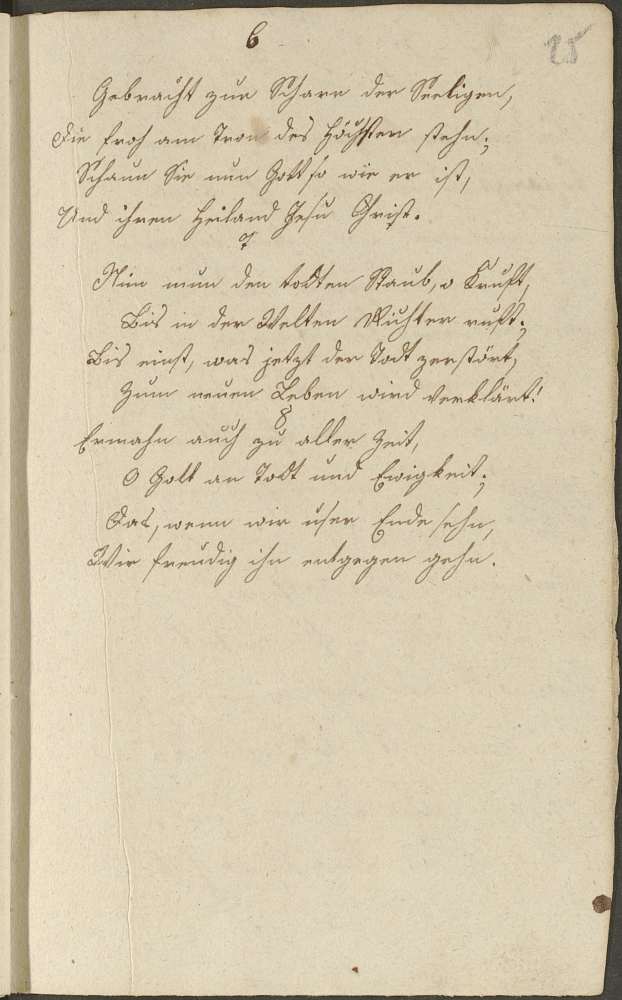 6
25
Gebracht zur Schaar der Seeligen,
Die froh am Tron des Höchsten stehn;
Schaun Sie nun Gott so wie er ist,
Und ihren Heiland Jesu Christ.
7
Nim nun den todten Staub, o Kruft,
Bis in der Welten Richter ruft;
Bis einst, was jetzt der Todt zerstört,
Zum neuen Leben wird verklärt!
8
Ermahn auch zu aller Zeit,
O Gott an Todt und Ewigkeit;
Das, wenn wir user Ende sehn,
Wir freudig ihn entgegen gehn.